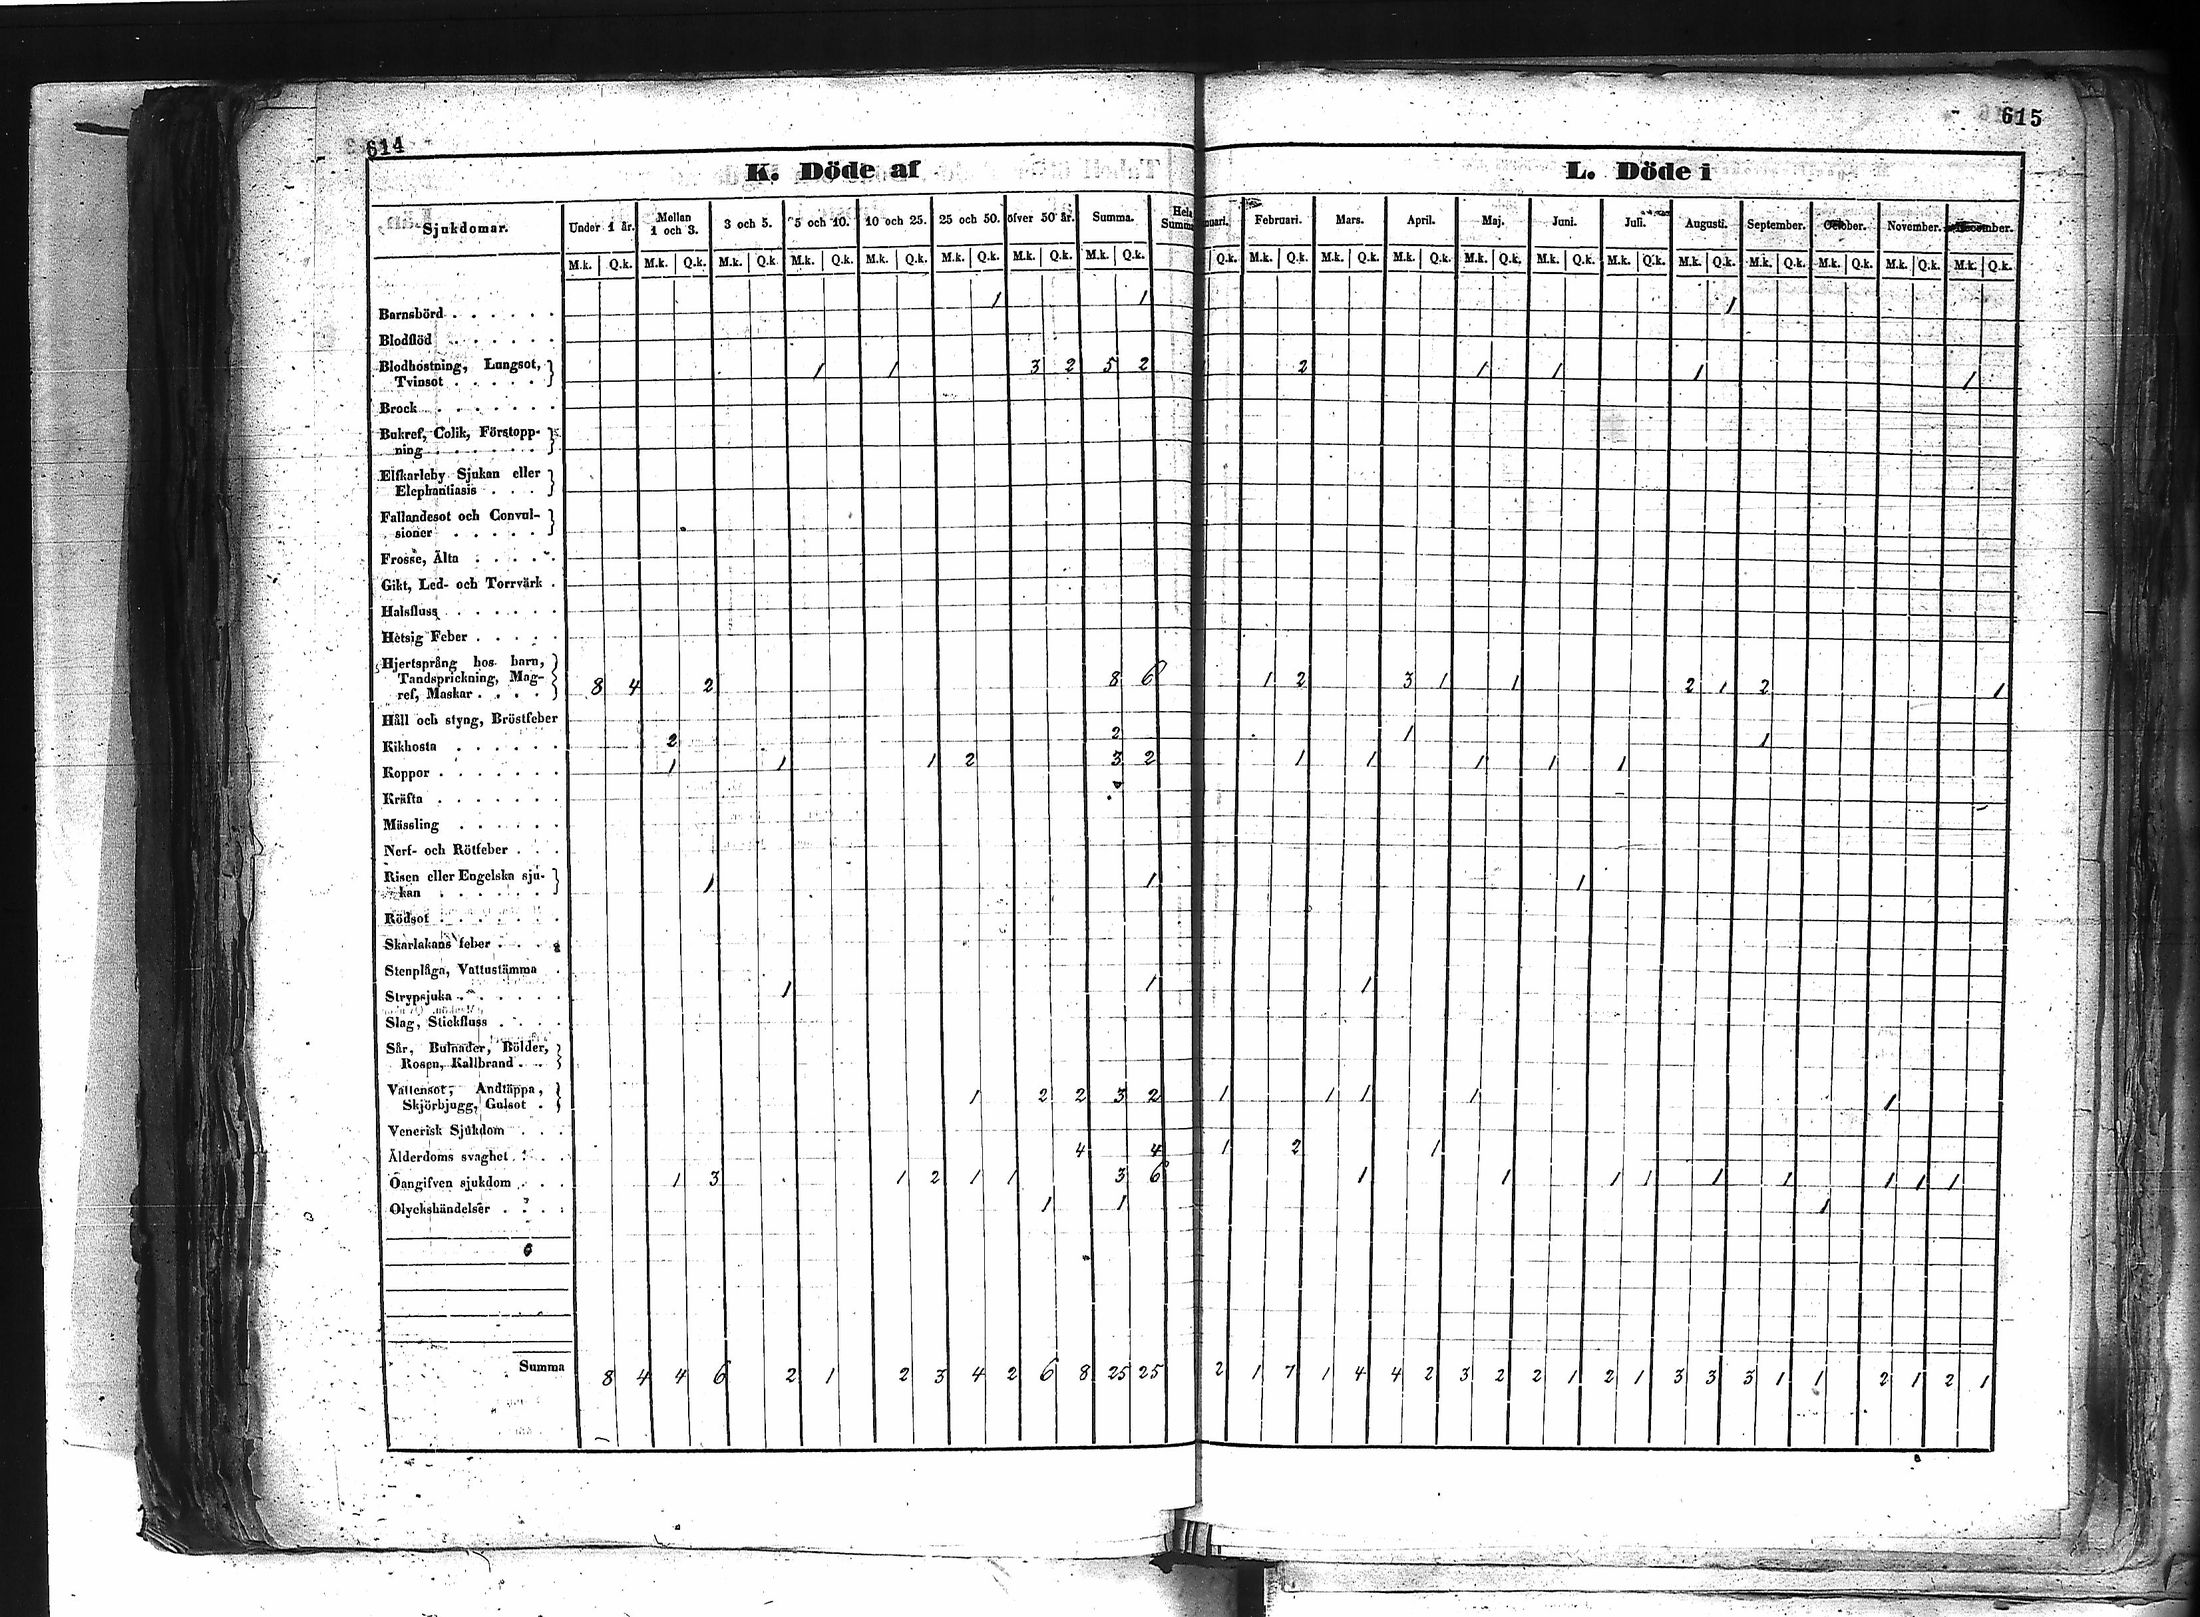 614
615
K. Döde af
L. Döde i
Sjukdomar. Under 1 år. Mellan 1 och 3. 3 och 5. 5 och 10. 10 och 25. 25 och 50. öfver 50 år. Summa. Hela Summa
nuari. Februari. Mars. April. Maj. Juni. Juli. Augusti. September. October. November. December.
M.k. Q.k. M.k. Q.k. M.k. Q.k. M.k. Q.k. M.k. Q.k. M.k. Q.k. M.k. Q.k. M.k. Q.k.
Q.k. M.k. Q.k. M.k. Q.k. M.k. Q.k. M.k. Q.k. M.k. Q.k. M.k. Q.k. M.k. Q.k. M.k. Q.k. M.k. Q.k. M.k. Q.k. M.k. Q.k.
Barnsbörd 1 1 1
Blodflöd
Blodhostning, Lungsot,
Tvinsot 1 1 3 2 5 2 2 1 1 1 1
Brock
Bukref, Colik, Förstopp-
ning
Elfkarleby Sjukan eller
Elephantiasis
Fallandesot och Convul-
sioner
Frosse, Älta
Gikt, Led- och Torrvärk
Halsfluss
Hetsig Feber
Hjertsprång hos barn,
Tandsprickning, Mag-
ref, Maskar 8 4 2 8 6 1 2 3 1 1 2 1 2 1
Håll och styng, Bröstfeber
Kikhosta 2 2 1 1
Koppor 1 1 1 2 3 2 1 1 1 1 1
Kräfta
Mässling
Nerf- och Rötfeber
Risen eller Engelska sju-
kan 1 1 1
Rödsot
Skarlakans feber
Stenplåga, Vattustämma
Strypsjuka 1 1 1
Slag, Stickfluss
Sår, Bulnader, Bölder,
Rosen, Kallbrand
Vattensot, Andtäppa,
Skjörbjugg, Gulsot 1 2 2 3 2 1 1 1 1 1
Venerisk Sjukdom
Ålderdoms svaghet 4 4 1 2 1
Oangifven sjukdom 1 3 1 2 1 1 3 6 1 1 1 1 1 1 1 1 1
Olyckshändelser 1 1 1
Summa 8 4 4 6 2 1 2 3 4 2 6 8 25 25 2 1 7 1 4 4 2 3 2 2 1 2 1 3 3 3 1 1 2 1 2 1